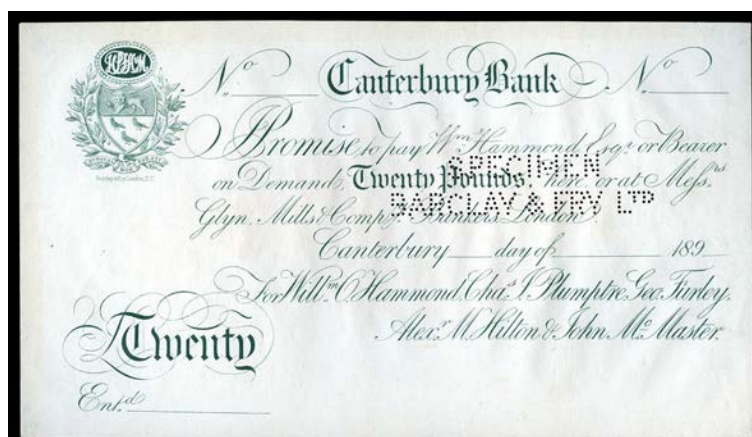 HPFHM
No Canterbury Bank No
I Promise to pay Wm Hammond Esqr. or Bearer
on Demand, Twenty Pounds, here or at Messrs
Glyn, Mills & Compy. Bankers London.
SPECIMEN
BARCLAY & FRY LTD
Canterbury day of 189
For Willm. O. Hammond, Chas. J. Plumptre, Geo. Furley,
Alexr. M. Hilton & John Mc. Master.
Twenty
Entd.